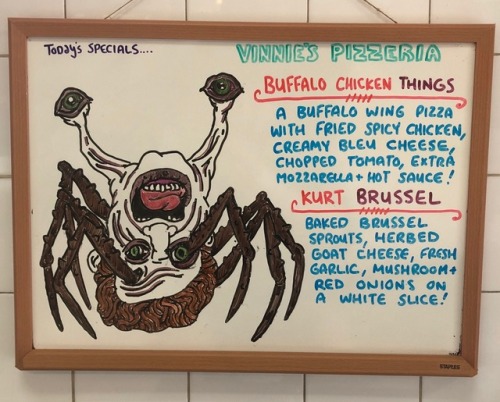 Today's SPECIALS....
VINNIE'S PIZZERIA
BUFFALO CHICKEN THINGS
A BUFFALO WING PIZZA
WITH FRIED SPICY CHICKEN,
CREAMY BLEU CHEESE,
CHOPPED TOMATO, EXTRA
MOZZARELLA + HOT SAUCE!
KURT BRUSSEL
BAKED BRUSSEL
SPROUTS, HERBED
GOAT CHEESE, FRESH
GARLIC, MUSHROOM +
RED ONIONS ON
A WHITE SLICE!
STAPLES